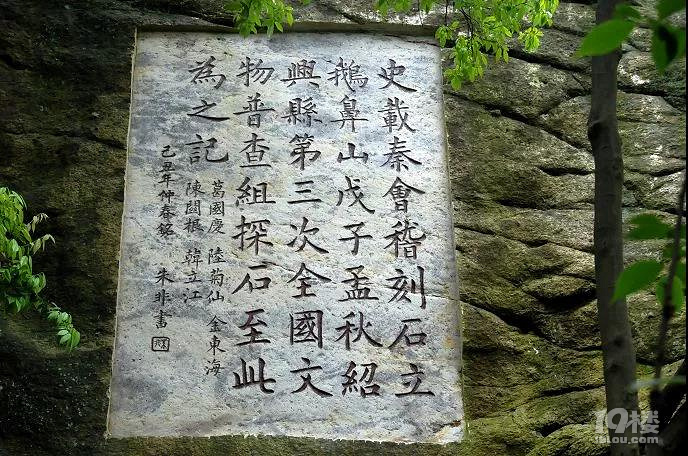 史載秦會稽刻石立
鵝鼻山戊子孟秋紹
興縣第三次全國文
物普查組探石至此
為之記
葛國慶 陸菊仙 金東海
陳國根 韓立江
己丑年仲春銘 朱非書
19楼
19lou.com